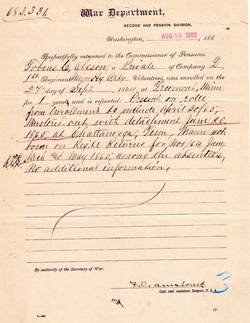 683,331
War Department,
RECORD AND PENSION DIVISION,
Washington, AUG 24 1889, 188
Respectfully returned to the Commissioner of Pensions.
Tobias C. Olsson, a Private of Company
1st Regiment Minn Hy Arty Volunteers, was enrolled on the
27 day of Sept, 1864, at Fremont, Minn.
for 1 year, and is reported: Present on rolls
from enrollment to April 30, 65,
Mustered out with detachment June
1865, at Chattanooga, Tenn. Name not
borne on Regt Returns for Nov 64 Jany
and May 1865, among the absentees,
No additional information,
By authority of the Secretary of War.
Capt. and Assistant Surgeon, U.S.A.
3